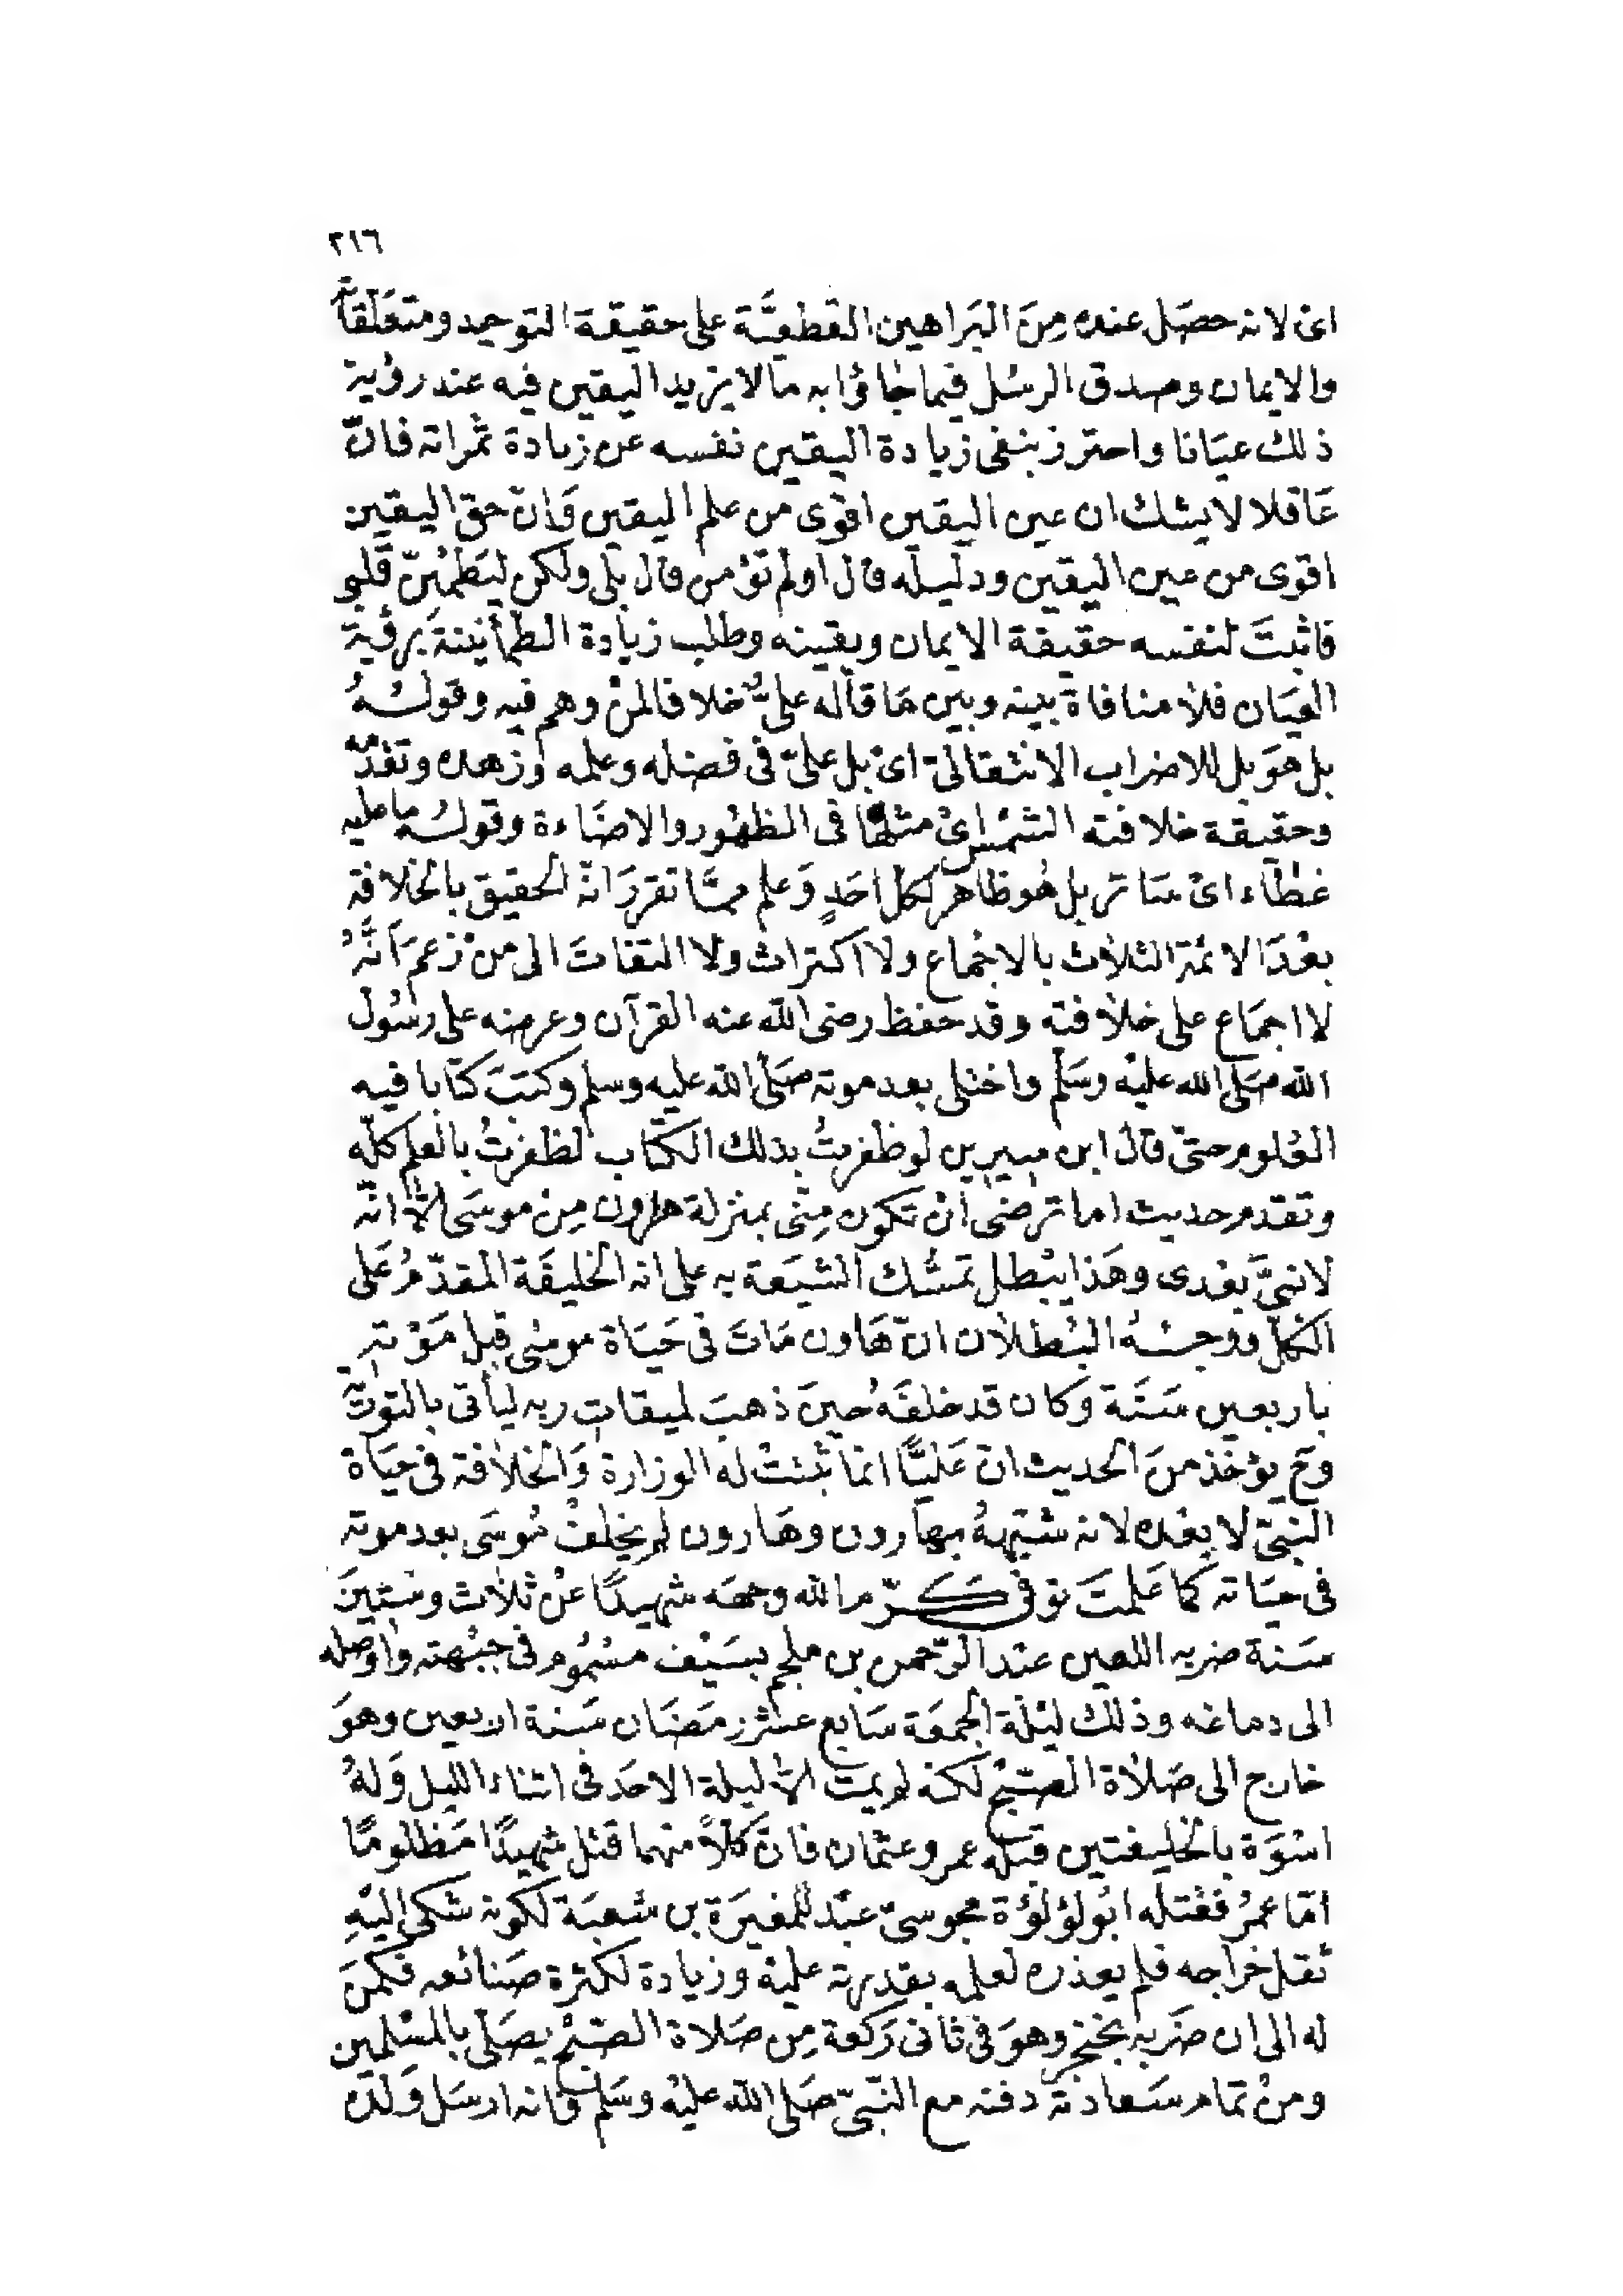 ٢١٦
اى لانه حصَل عنده مِنَ البَراهين القطعيَّة على حقيقة التوحيد ومتعَلّقاته
والايمان وصدق الرسُل فيما جَاؤا به مالا يزيد اليقين فيه عند رؤية
ذلك عيَانا واحترز بنفى زيادة اليقين نفسه عن زيادة ثمراته فانّ
عَاقلا لا يشك ان عين اليقين اقوى من علم اليقين وَانّ حق اليقين
اقوى من عين اليقين ودليله قال اولم تؤمن قال بَلى ولكن ليَطمَئنّ قَلبى
فاثبتَ لنفسه حقيقة الايمان ويقينه وطلب زيادة الطمأنينة برؤية
العيَان فلا منافاة بينه وبين مَا قاله علىٌّ خلافا لمنْ وهم فيه وقولهُ
بل هوَ بل للاضراب الانتقالىّ اىْ بل علىّ فى فضله وعلمه وزهده وتقدّمه
وحقيقة خلافته الشمس اىْ مثلهَا فى الظهُور والاضَاءة وقولهُ ما عليه
غطاء اىْ سَاتر بل هُو ظاهر لكل احَدٍ وَعلم ممَّا تقررَ انّه الحقيق بالخلافة
بعْدَ الائمّة الثلاث بالاجْماع ولا اكتراث ولا التفاتَ الى منْ زعمَ اَنَّهُ
لا اجمَاع على خلافته وقد حفظ رضى الله عنه القرآن وعرضه على رسُول
الله صَلى الله عليْه وسَلم واختلى بعد موته صَلى الله عليه وسلم وكتبَ كتابا فيه
العُلوم حتىّ قالَ ابن سيرين لو ظفرتُ بذلك الكتاب لظفرتُ بالعلم كلّه
وتقدم حديث اما ترضىَ انْ تكون مِنّى بمنزلة هارون مِنْ موسَى الاّ انّه
لا نبىَّ بعْدى وهَذا يبْطل تمسُّك الشيَعة به على انه الخليفَة المقدّمُ عَلى
الكلّ ووجْهُ البُطلان انّ هَاون مَاتَ فى حَيَاة موسٰى قبل مَوْته
باربعين سَنَة وَكان قد خلفَهُ حينَ ذهبَ لميقات ربه ليأتى بالتوراة
وَح يؤخذ منَ الحديث ان عَليًّا انما ثبتتْ له الوزارة وَالخلافة فى حيَاة
النبىّ لا بعْده لانه شبّههُ بهارون وهَارون لم يخلفْ مُوسَى بعد موته
فى حيَاته كما عَلمتَ توفى كرّم الله وجهَه شهيدًا عنْ ثلاث وستينَ
سَنة ضربه اللعين عبْد الرّحمن بن ملجم بسَيْف مسْمُوم فى جبْهته واوصله
الى دماغه وذلك ليْلة الجمعَة سَابع عشر رمَضَان سَنة اربعين وهوَ
خارج الى صَلاة الصبْح لكنه لم يمت الاّ ليلة الاحَد فى اثناء الليل وَلهُ
اسْوَة بالخليفتين قبْله عمر وعثمان فانّ كلاًّ منهما قتل شهيدًا مَظلومًا
امّا عمرُ فقتله ابُو لؤلؤة مجوسىّ عبْد للمغيرَة بن شعبَة لكونه شكى اليْهِ
ثقل خَراجه فلم يعذره لعلمه بقدرته عليْه وزيادة لكثرة صَنائعه فكمنَ
له الى ان ضرَبه بخنجر وهوَ فى ثانى رَكعة مِن صَلاة الصّبْح يصَلى بالمسْلمين
ومنْ تمام سَعادته دفنه مع النّبىّ صَلى الله عليْه وسَلم فانه ارسَل وَلده